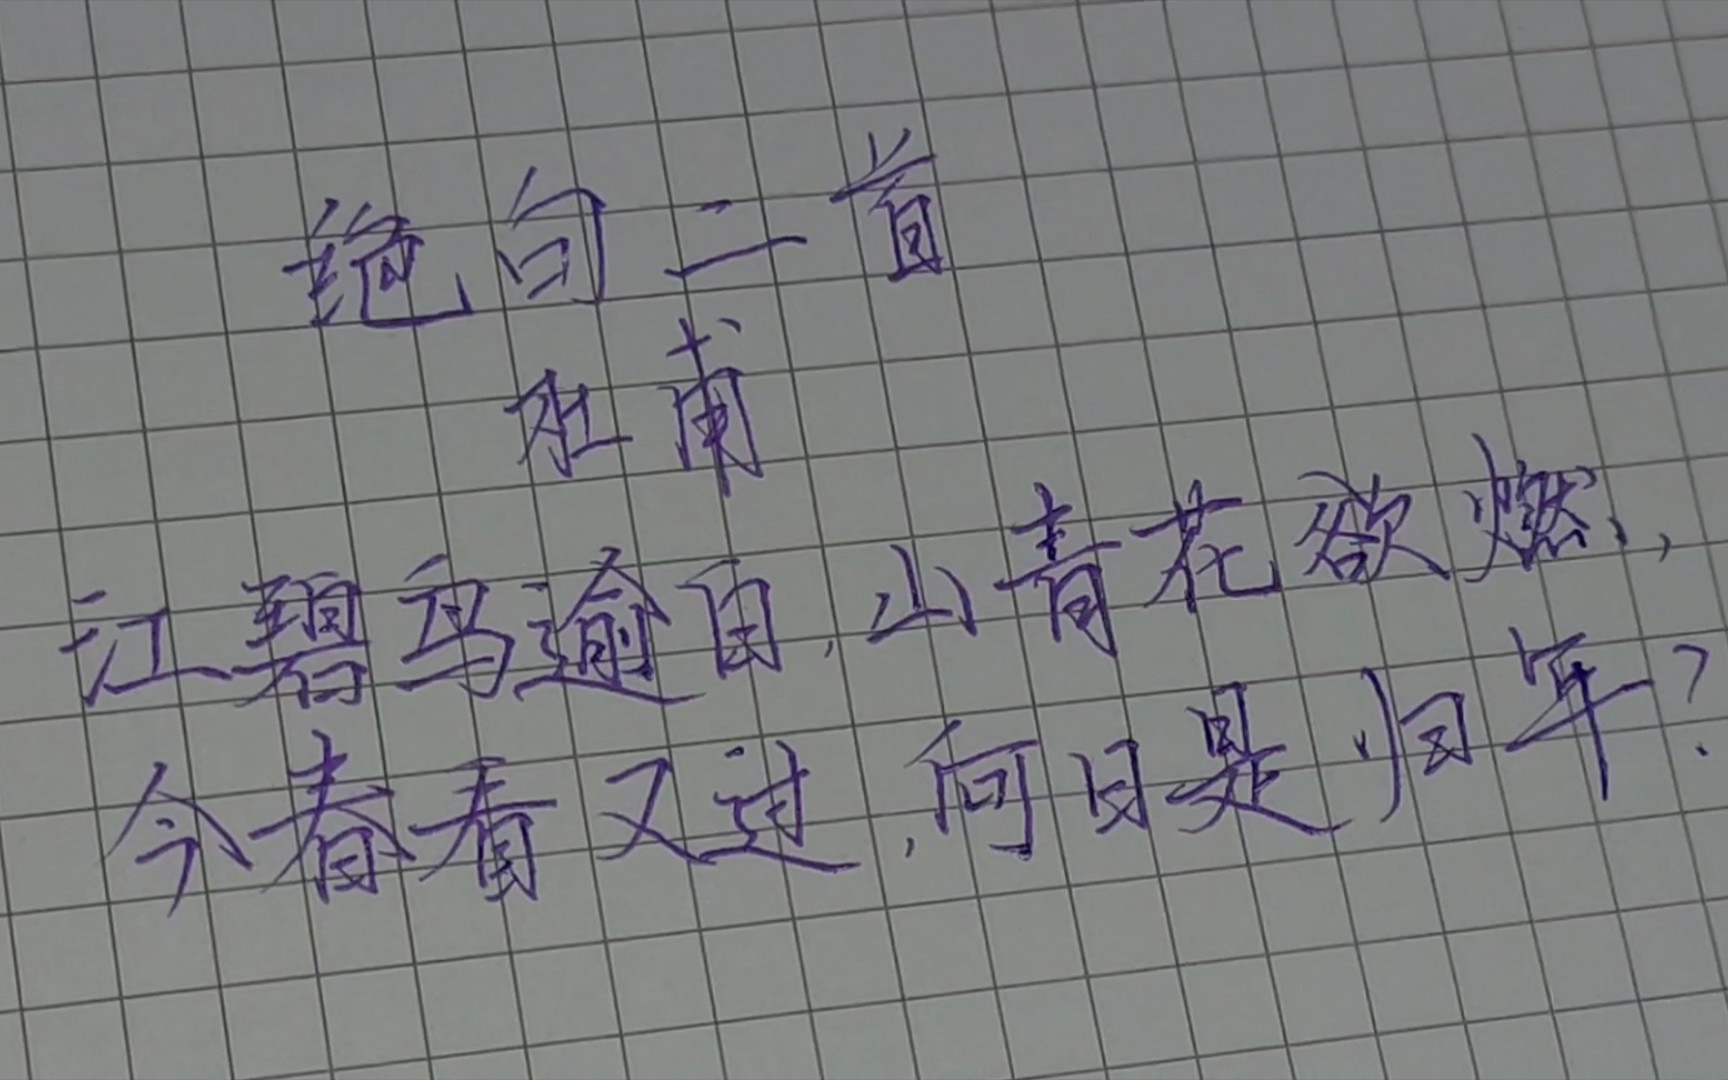 绝句二首
杜甫
江碧鸟逾白，山青花欲燃，
今春看又过，何日是归年？